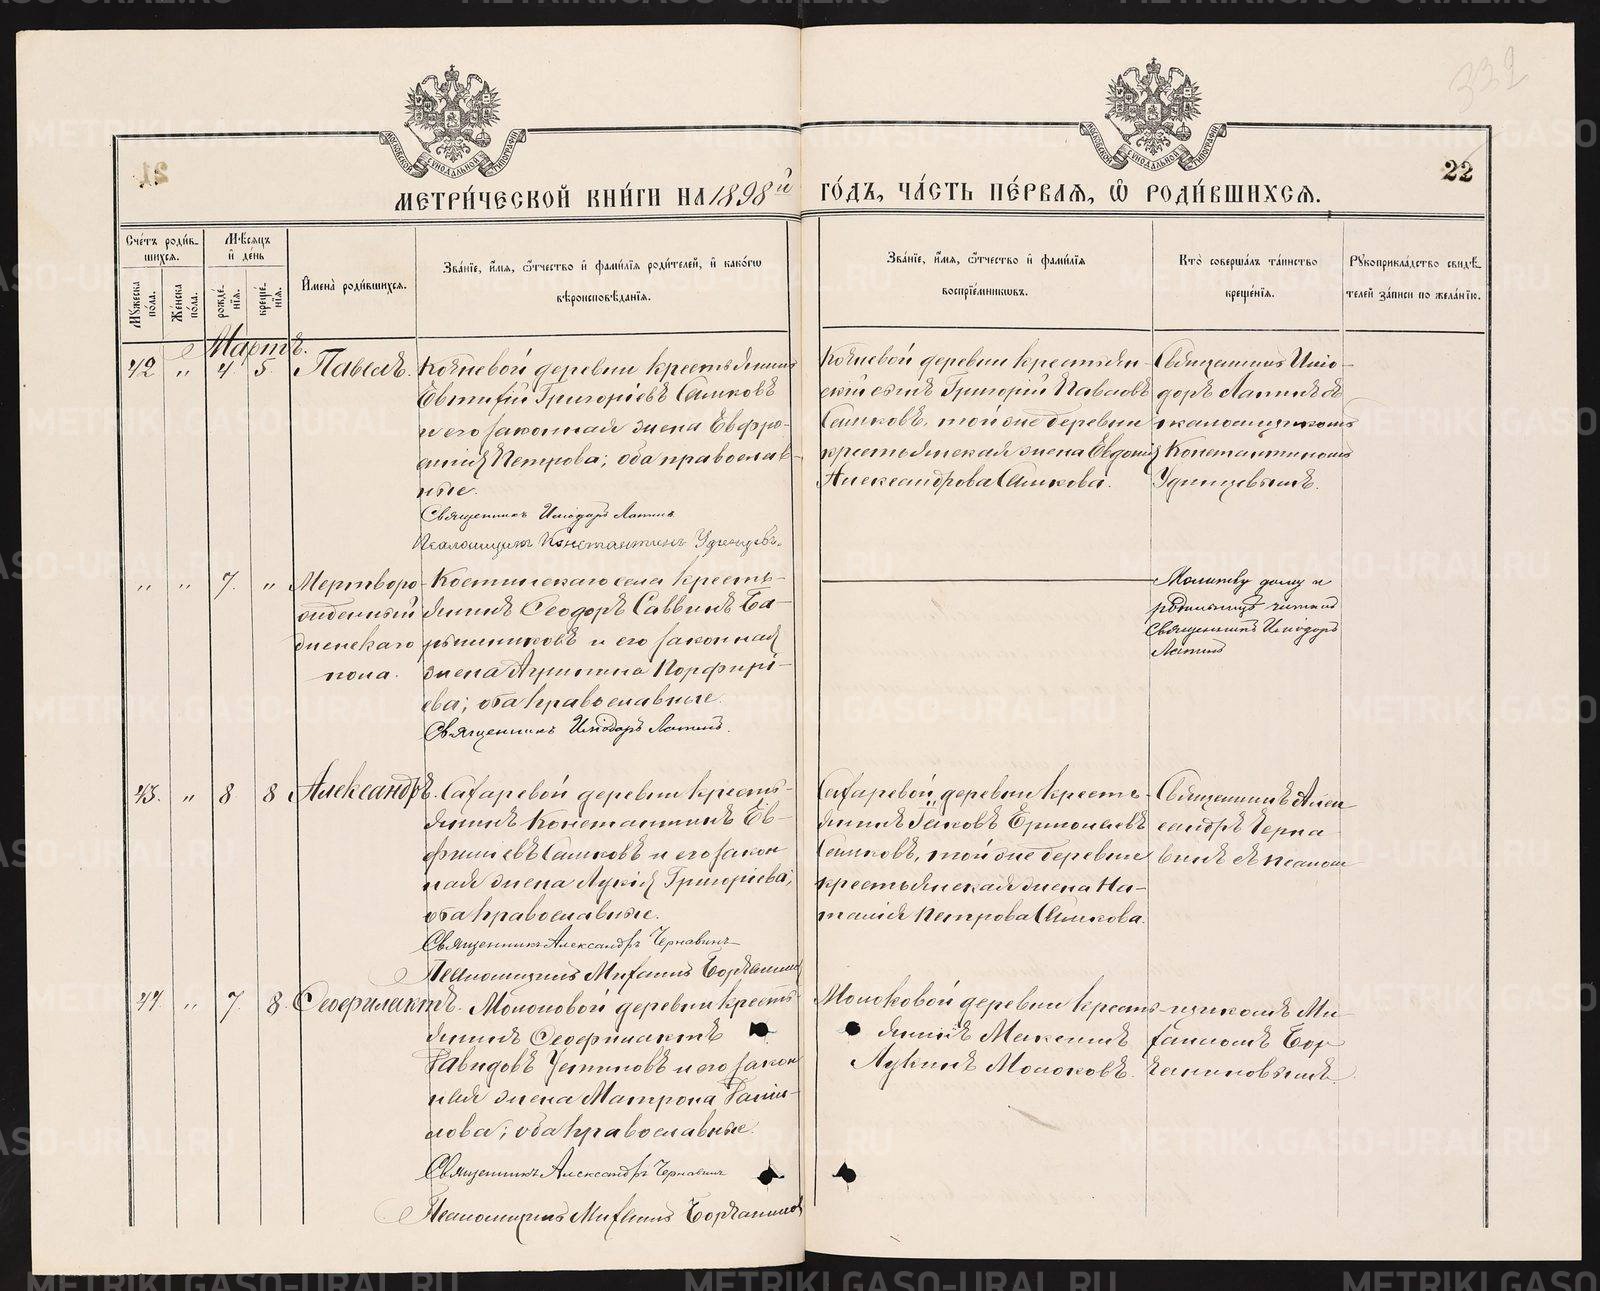 332
21
22
МЕТРИ́ЧЕСКОЙ КНИ́ГИ НА 1898й ГО́ДЪ, ЧА́СТЬ ПЕ́РВАЯ, Ѿ РОДИ́ВШИХСЯ.
Сче́тъ роди́вшихся.
Му́жеска по́ла.
Же́нска по́ла.
Мѣ́сяцъ и де́нь
рожде́нія.
креще́нія.
Имена̀ роди́вшихся.
Зва́ніе, и́мя, ѻ҆́тчество и фами́лія роди́телей, и како́гѡ
вѣроисповѣ́данія.
Зва́ніе, и́мя, ѻ҆́тчество и фами́лія
воспріе́мниковъ.
Кто̀ соверша́лъ та́инство
креще́нія.
Рукоприкла́дство свидѣ́-
телей за́писи по жела́нію.
Мартъ.
42 " 4 5. Павелъ.
Кочневой деревни крестьянинъ
Евтифій Григоріевъ Сашковъ
и его законная жена Евфро-
Петрова; оба православ-
ные.
Священникъ Исидоръ Лапинъ
Псаломщикъ Константинъ Удинцевъ.
Кочневой деревни крестьян-
Григорій Павловъ
Сашковъ, той же деревни
крестьянская жена Евдокія
Александрова Сашкова.
Священникъ Иси-
доръ Лапинъ съ
псаломщикомъ
Константиномъ
Удинцевымъ.
" " 7. " Мертворо-
жденный
женскаго
пола.
Костинскаго села кресть-
янинъ Ѳеодоръ Саввинъ Ба-
и его законная
жена Агрипина Порфирі-
ева; оба православные.
Священникъ Исидоръ Лапинъ.
Молитву дому и
родильницѣ читалъ
Священникъ Исидоръ
Лапинъ
43. " 8 8 Александръ.
Сахаревой деревни кресть-
янинъ Константинъ Ев-
Сашковъ и его закон
ная жена Лукія Григоріева;
оба православные.
Священникъ Александръ Чернавинъ
Псаломщикъ Михаилъ Борчаниновъ
Сахаревой деревни кресть-
янинъ Іаковъ Ермолаевъ
Сашковъ, той же деревни
крестьянская жена На-
талія Петрова Сашкова.
Священникъ Алек-
сандръ Черна-
винъ съ псалом-
44. " 7. 8. Ѳеофилактъ.
Молоковой деревни кресть-
янинъ Ѳеофилактъ
Давидовъ Устиновъ и его закон
ная жена Матрона Дани-
лова; оба православные.
Священникъ Александръ Чернавинъ
Псаломщикъ Михаилъ Борчаниновъ
Молоковой деревни кресть-
янинъ Максимъ
Лукинъ Молоковъ.
щикомъ Ми-
хаиломъ Бор-
чаниновымъ.